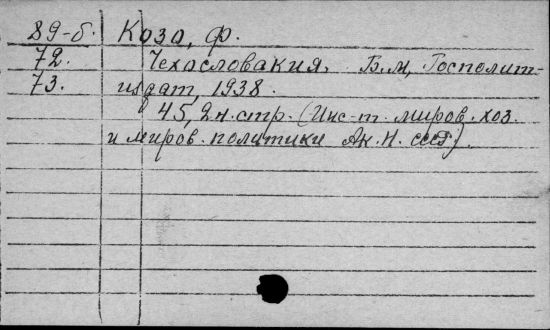 89-б. Козо, Ф.
72. Чехословакия. Б.м, Госполит-
73. издат, 1938.
45, 2н.стр. (Инс-т. миров. хоз.
и миров. политики Ак. Н. СССР).